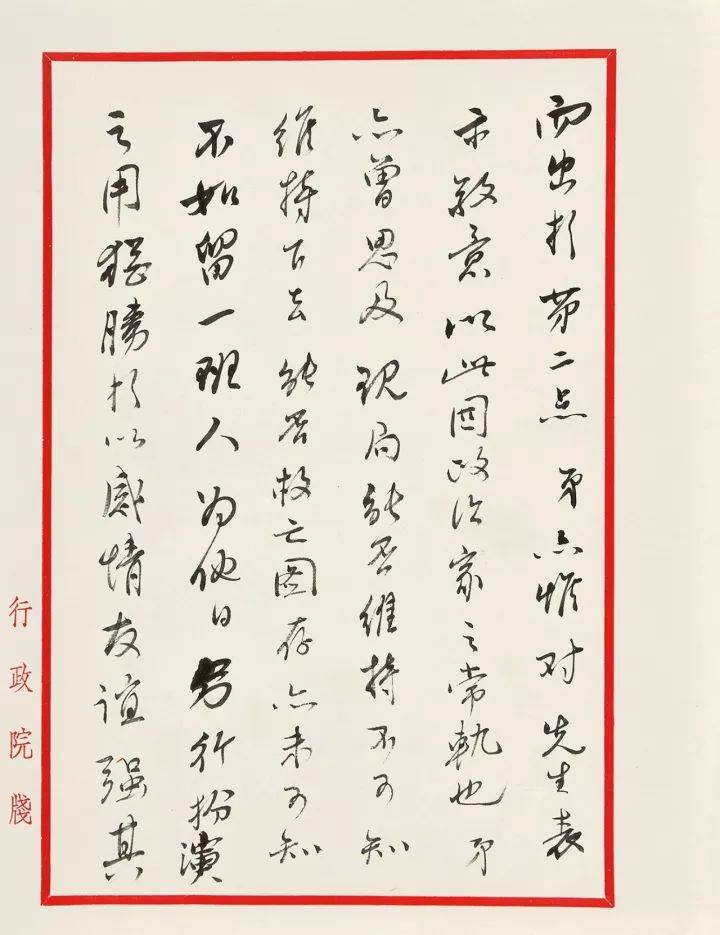 而出于第二点 弟亦惟对 先生表
示敬意 以此固政治家之常轨也 弟
亦曾思及现局能否维持不可知
维持下去能否救亡图存亦未可知
不如留一班人为他日另行扮演
之用犹胜于以感情友谊强其
行政院牋